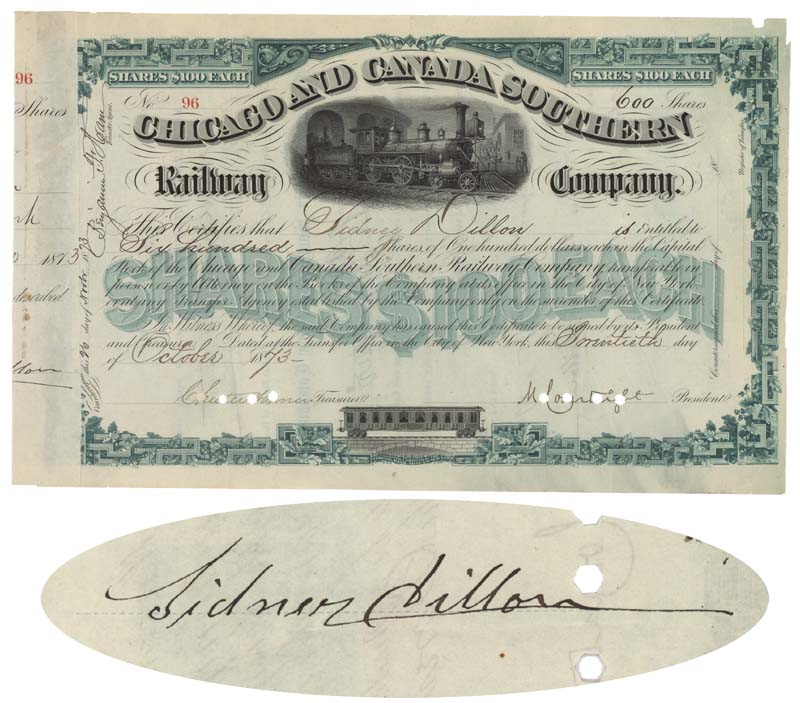 96
SHARES $100 EACH
SHARES $100 EACH
Shares
No 96
600 Shares
CHICAGO AND CANADA SOUTHERN
Railway Company.
1873
This Certifies that Sidney Dillon is Entitled to
Six hundred Shares of One hundred dollars each in the Capital
Stock of the Chicago and Canada Southern Railway Company, transferable in
person or by Attorney at the Books of the Company at its office in the City of New York
or at any Transfer Agency established by the Company only on the surrender of this Certificate
SHARES $100 EACH
In Witness Whereof, the said Company has caused this Certificate to be signed by its President
and Treasurer. Dated at the Transfer Office in the City of New York, this Twentieth day
of October 1873
Treasurer
President
Sidney Dillon